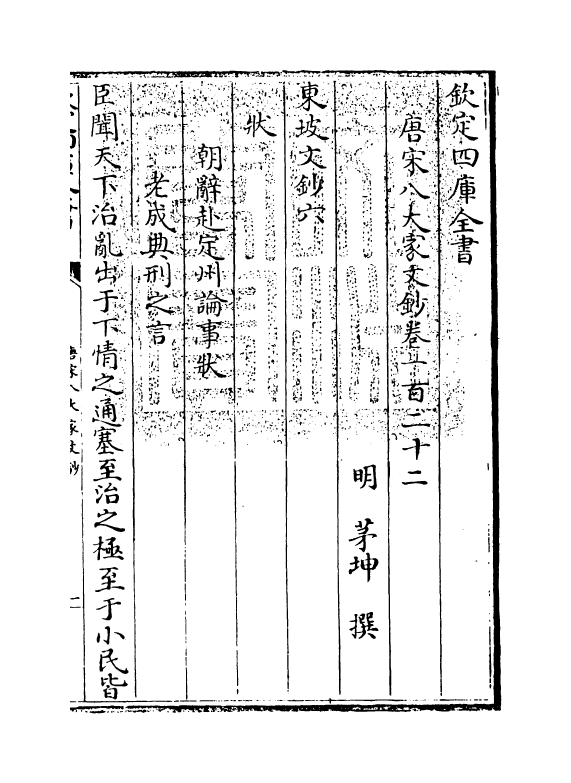 欽定四庫全書
唐宋八大家文鈔卷一百二十二
明 茅坤 撰
東坡文鈔六
狀
朝辭赴定州論事狀
老成典刑之言
臣聞天下治亂出于下情之通塞至治之極至于小民皆
唐宋八大家文鈔